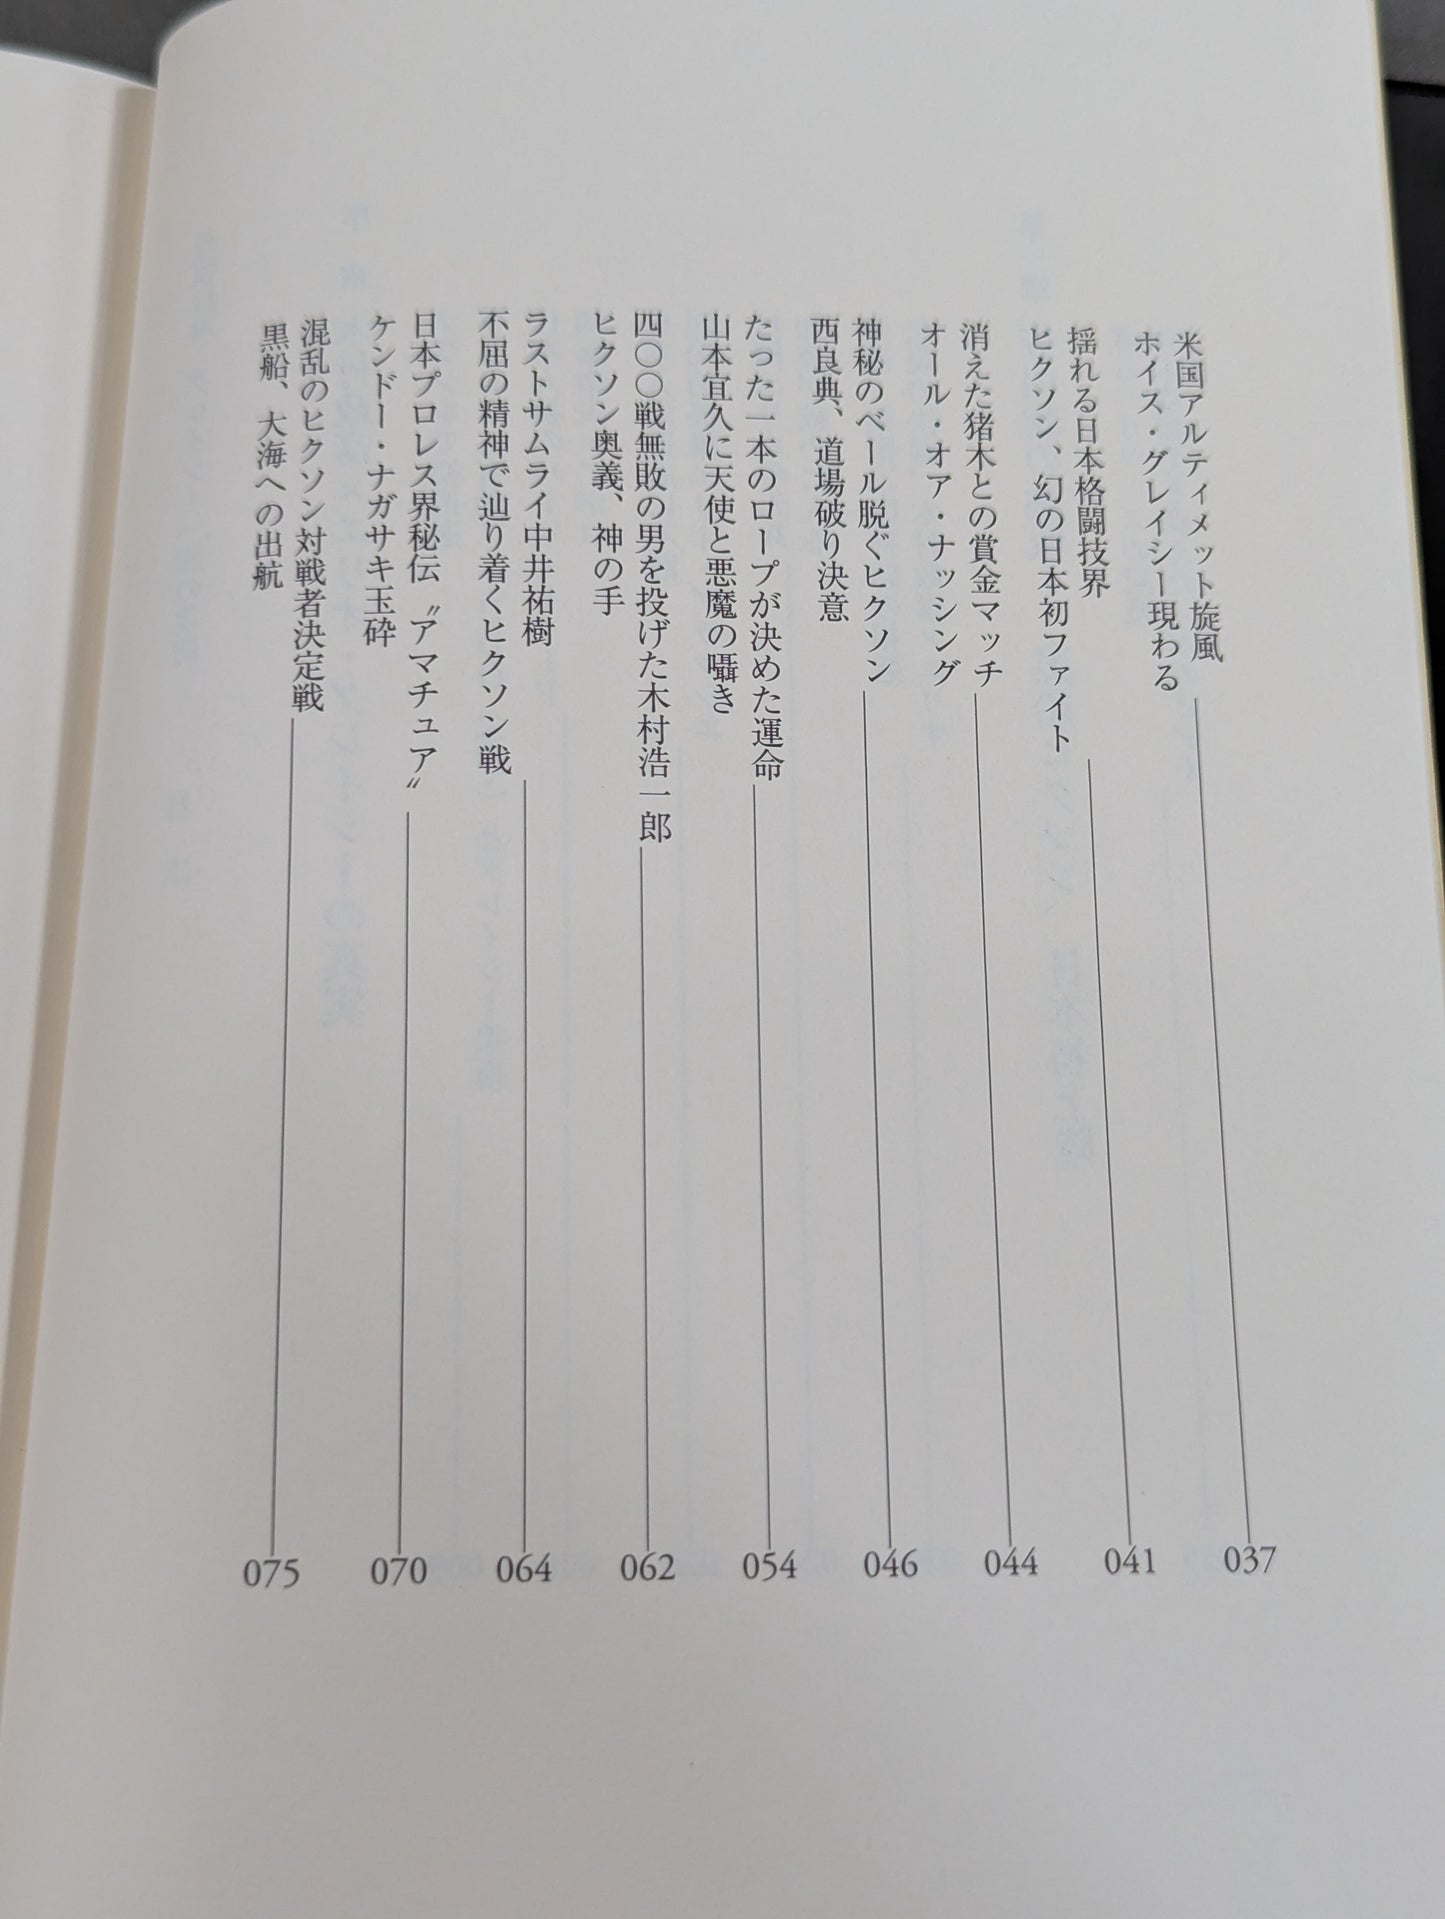 米国アルティメット旋風
ホイス・グレイシー現わる
037
揺れる日本格闘技界
ヒクソン、幻の日本初ファイト
041
消えた猪木との賞金マッチ
オール・オア・ナッシング
044
神秘のベール脱ぐヒクソン
西良典、道場破り決意
046
たった一本のロープが決めた運命
山本宜久に天使と悪魔の囁き
054
四〇〇戦無敗の男を投げた木村浩一郎
ヒクソン奥義、神の手
062
ラストサムライ中井祐樹
不屈の精神で辿り着くヒクソン戦
064
日本プロレス界秘伝〝アマチュア〟
ケンドー・ナガサキ玉砕
070
混乱のヒクソン対戦者決定戦
黒船、大海への出航
075